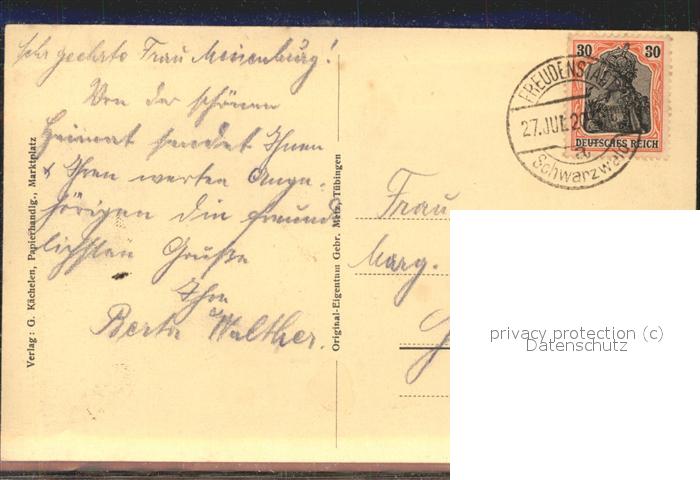 Sehr geehrte Frau Meisenburg!
Von der schönen
Heimat sendet Ihnen
& Ihren werten Ange-
hörigen die freund-
lichsten Grüße
Ihre
Berta Walther.
Verlag: G. Kächelen, Papierhandlg., Marktplatz
Original-Eigentum Gebr. Metz, Tübingen
30 30
DEUTSCHES REICH
FREUDENSTADT
27.JUL 20
Schwarzwald
Frau
Marg.
privacy protection (c)
Datenschutz